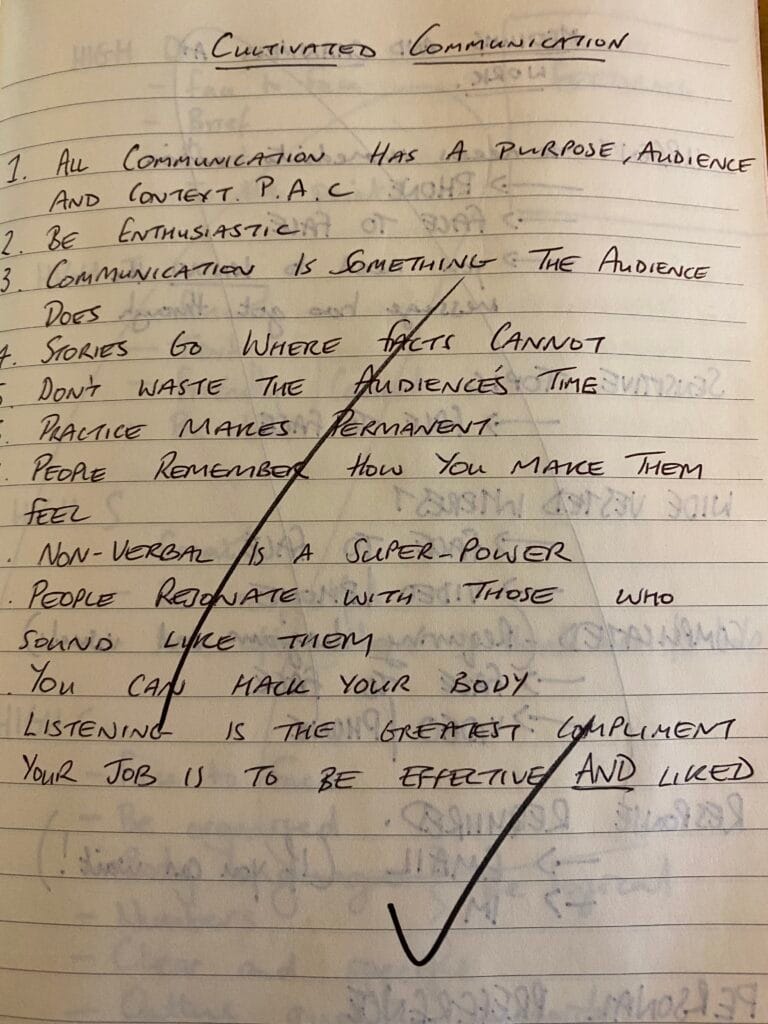 CULTIVATED COMMUNICATION
1. ALL COMMUNICATION HAS A PURPOSE, AUDIENCE
AND CONTEXT. P.A.C
2. BE ENTHUSIASTIC
3. COMMUNICATION IS SOMETHING THE AUDIENCE
DOES
STORIES GO WHERE FACTS CANNOT
DON'T WASTE THE AUDIENCE'S TIME
PRACTICE MAKES PERMANENT.
PEOPLE REMEMBER HOW YOU MAKE THEM
FEEL
. NON-VERBAL IS A SUPER-POWER
. PEOPLE RESONATE WITH THOSE WHO
SOUND LIKE THEM
. YOU CAN HACK YOUR BODY
LISTENING IS THE GREATEST COMPLIMENT
YOUR JOB IS TO BE EFFECTIVE AND LIKED